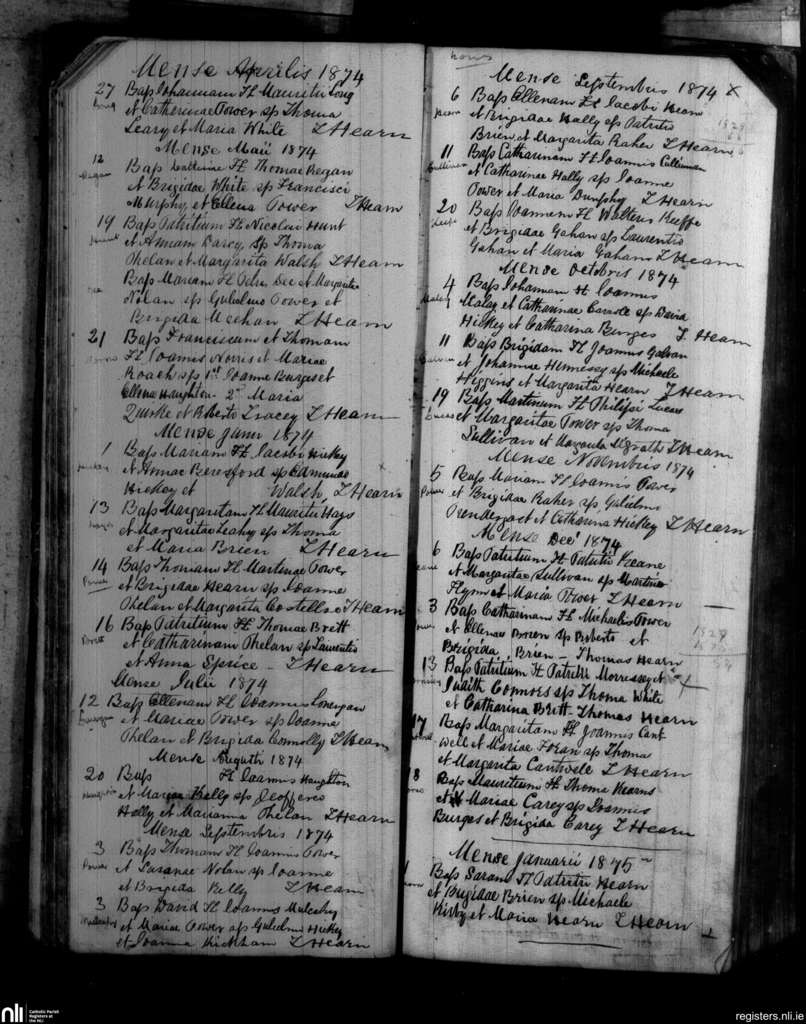 Mense Aprilis 1874
27 Bap Johannam Fl Mauritii Long
Long et Catherinae Power sp Thoma
Leary et Maria White T Hearn
Mense Maii 1874
12 Bap Fl Thomae Regan
Regan et Brigidae White sp Francisci
Murphy et Ellena Power T Hearn
19 Bap Patritium Fl Nicolai Hunt
et Annam Darcy Sp Thoma
Phelan et Margarita Walsh T Hearn
Bap Mariam Fl Petri Dee et Margaritae
Dee Nolan sp Gulielmo Power et
Brigida Meehan T Hearn
21 Bap Franciscum et Thomam
Fl Joannis Norris et Mariae
Roach sps 1st Joanne Burges et
Ellena Naughton 2nd Maria
Quirke et Roberto Tracey T Hearn
Mense Junii 1874
1 Bap Mariam Fl Jacobi Hickey
et Annae Beresford sp Edmundo
Hickey et Walsh, T Hearn
13 Bap Margaritam Fl Mauritii Hays
et Margaritae Leahy sp Thoma
et Maria Brien T Hearn
14 Bap Thomam Fl Martinae Power
Power et Brigidae Hearn sp Joanne
Phelan et Margarita Costello T Hearn
16 Bap Patritium Fl Thomae Brett
Brett et Catharinam Phelan sp Laurentio
et Anna Sprice - T Hearn
Mense Julii 1874
12 Bap Ellenam Fl Joannis Lonergan
et Mariae Power sp Joanne
Phelan et Brigida Connolly T Hearn
Mense Augusti 1874
20 Bap Fl Joannis Naughton
et Kelly sp Geoffereo
Holly et Marianna Phelan T Hearn
Mense Septembris 1874
3 Bap Thomam Fl Joannis Power
Power et Susanae Nolan sp Joanne
et Brigida Kelly T Hearn
3 Bap David Fl Joannis Mulcahy
Mulcahy et Mariae Power sp Gulielmo Hickey
et Joanna Kirkham T Hearn
Mense Septembris 1874 x
6 Bap Ellenam Fl Jacobi Hearn
Hearn et Brigidae Hally sp Patritio
Brien et Margarita Raher T Hearn
11 Bap Catharinam Fl Joannis Cullinan
Cullinan et Catharinae Hally sp Joanne
Power et Maria Dunphy T Hearn
20 Bap Joannem Fl Walteris Keeffe
Keeffe et Brigidae Gahan sp Laurentio
Gahan et Maria Gahan T Hearn
Mense Octobris 1874
4 Bap Johannam Fl Joannis
Malay Malay et Catharinae Carroll sp David
Hickey et Catharina Burges T Hearn
11 Bap Brigidam Fl Joannis Galvan
Galvan et Johannae Hennessy sp Michaele
Higgins et Margarita Hearn T Hearn
19 Bap Martinum Fl Philipi Lucas
Lucas et Margaritae Power sp Thoma
Sullivan et Margarita McGrath T Hearn
Mense Novembris 1874
5 Bap Mariam Fl Joannis Power
Power et Brigidae Raher sp Gulielmo
Prendergast et Catharina Hickey T Hearn
Mense Dec' 1874
6 Bap Patritium Fl Patritii Keane
Keane et Margaritae Sullivan sp Martino
Flynn et Maria Power T Hearn
3 Bap Catharinam Fl Michaelis Power
Power et Ellenae Brien sp Roberto et
Brigida Brien - Thomas Hearn
13 Bap Patritium Fl Patritii Morrissey et
Judith Connors sp Thoma White
et Catharina Brett. Thomas Hearn
17 Bap Margaritam Fl Joannis Cant
well et Mariae Foran sp Thoma
et Margarita Cantwell T Hearn
18 Bap Mauritium Fl Thoma Kearns
et Mariae Carey sp Joannis
Burges et Brigida Carey T Hearn
Mense Januarii 1875
Bap Saram Fl Patritii Hearn
et Brigidae Brien sp Michaele
Kirby et Maria Hearn T Hearn
nli
Catholic Parish
Registers at
the NLI
registers.nli.ie